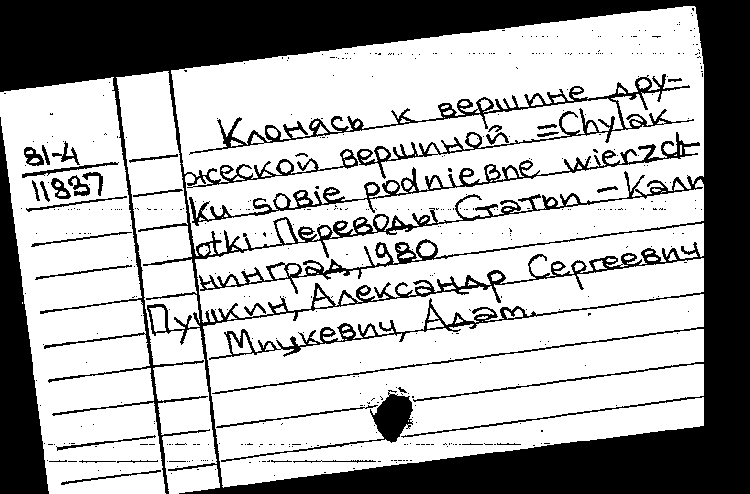 Клонясь к вершине дру-
81-4
жеской вершиной. =Chylak
11837
ku sobie podniebne wierzch-
otki: Переводы Статьи. - Кали
нинград, 1980
Пушкин, Александр Сергеевич
Мицкевич, Адам.